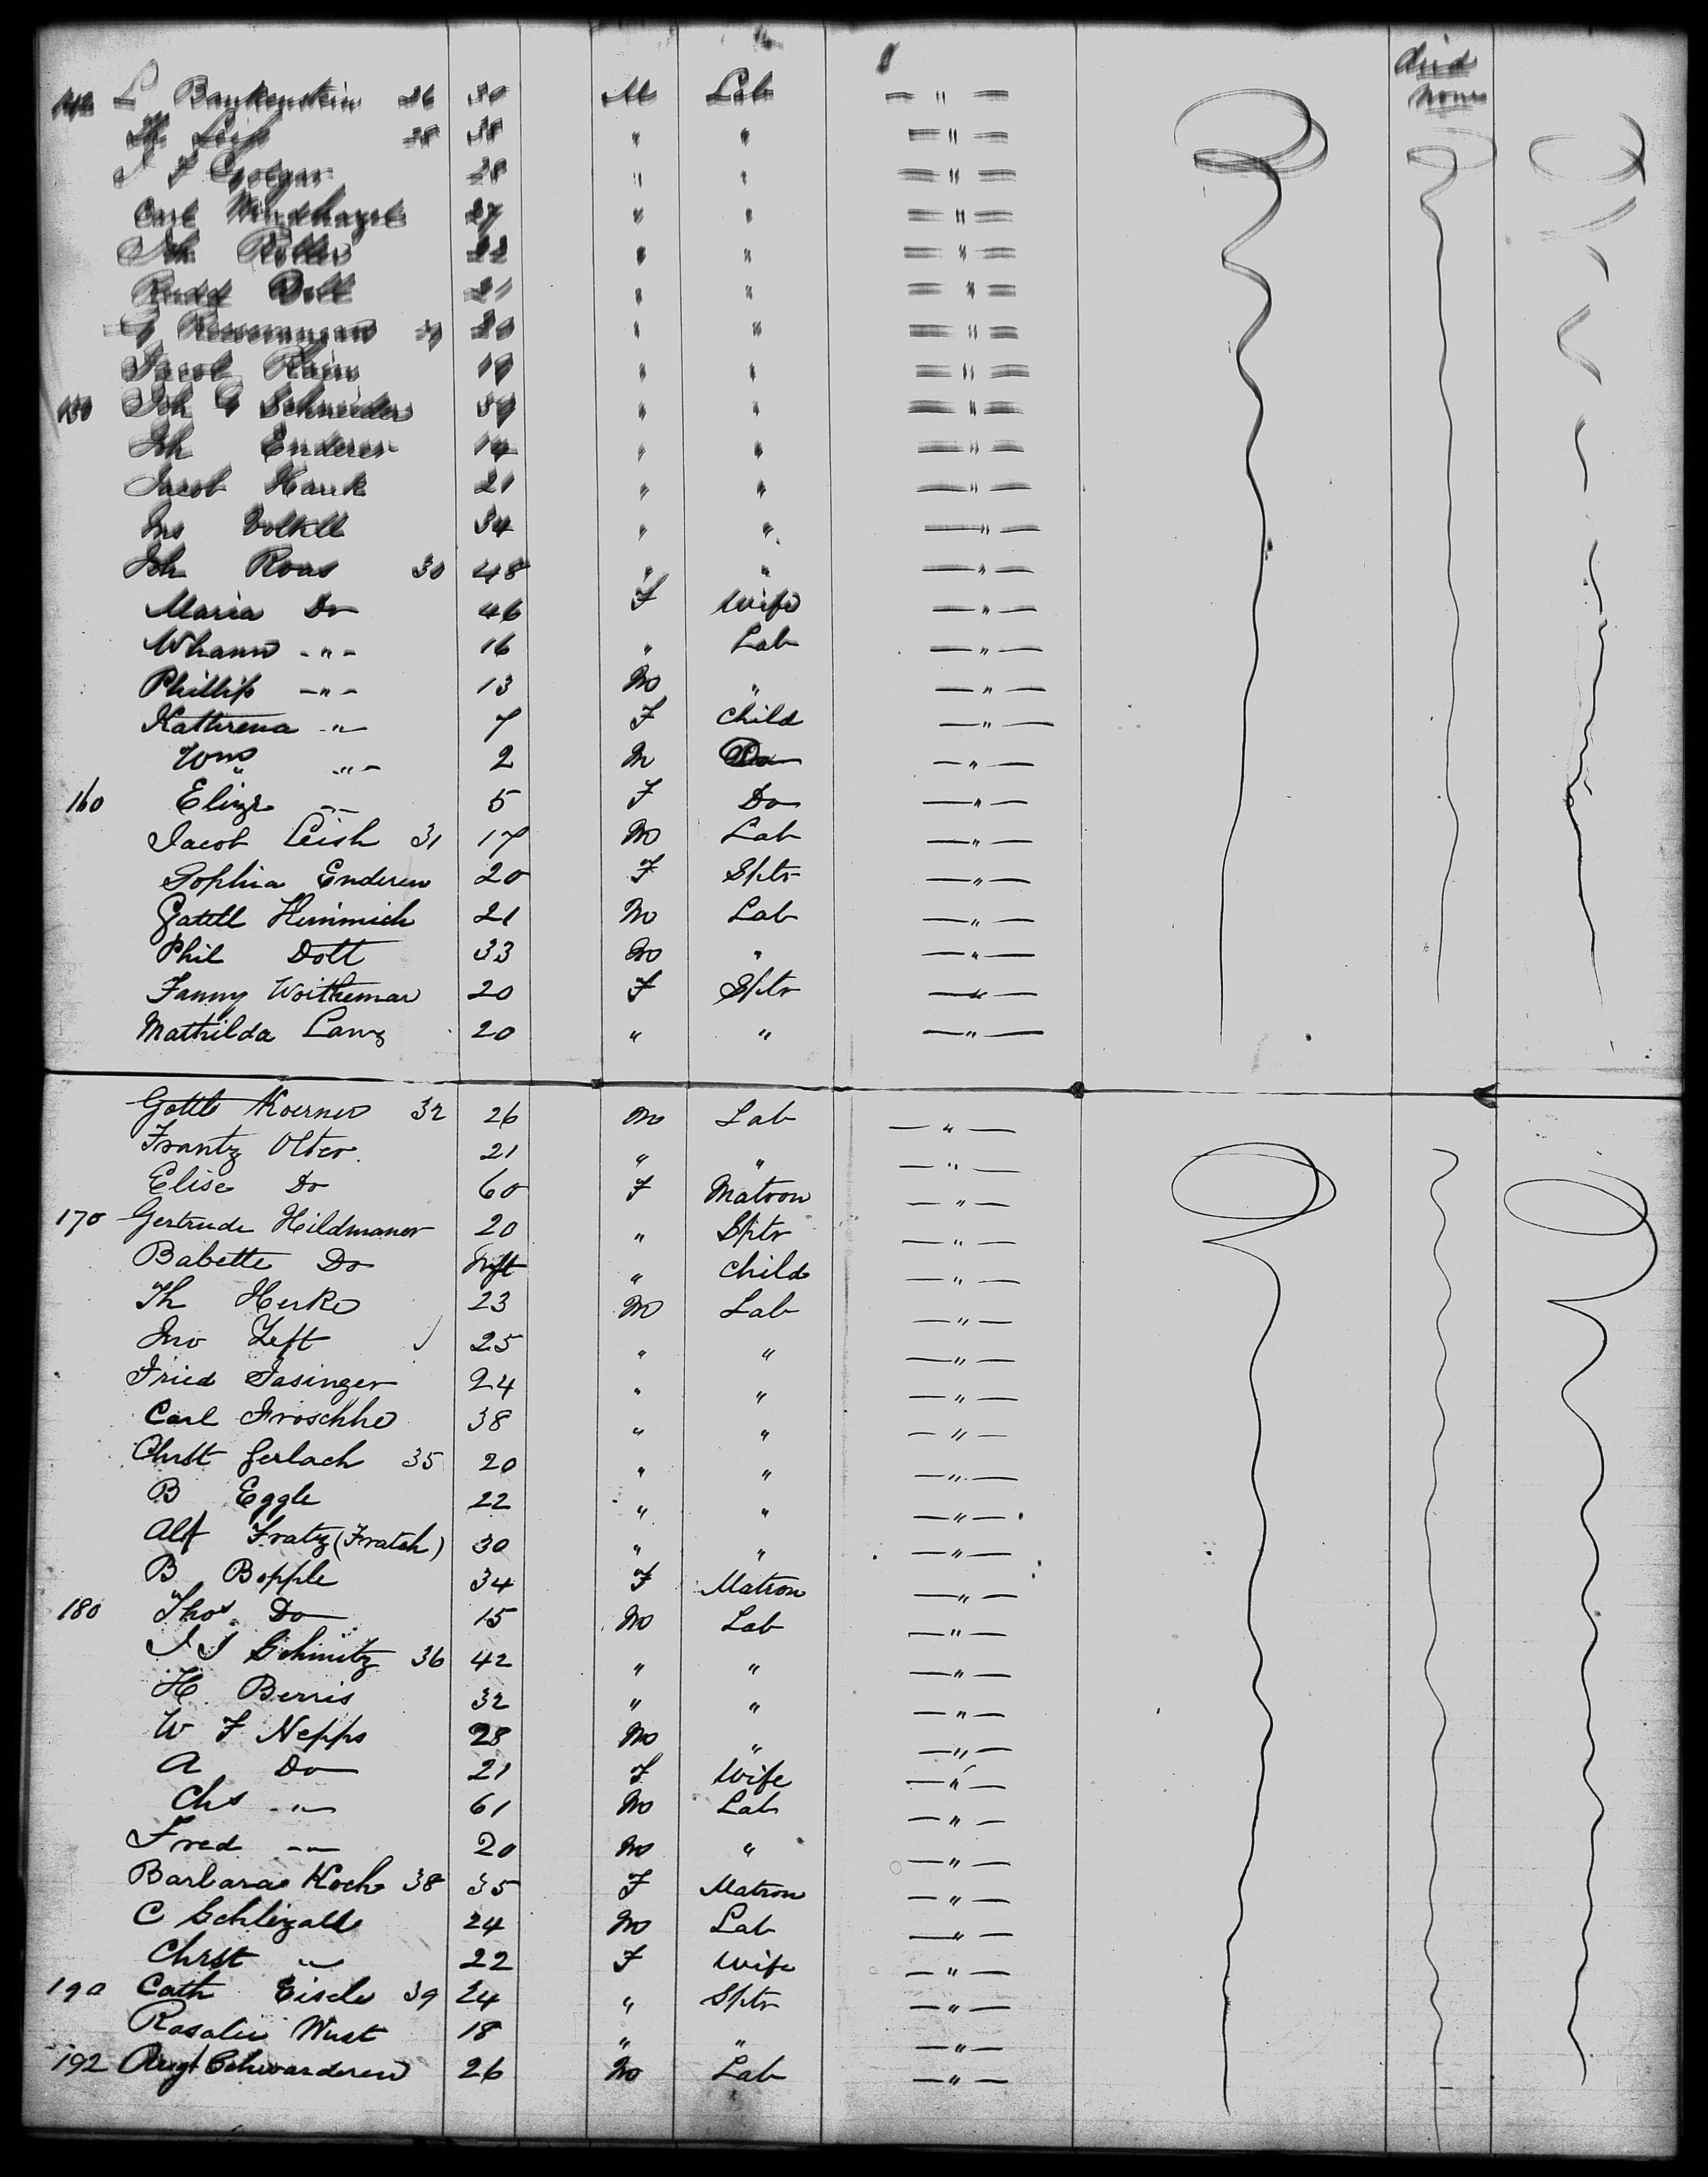 died
L Bankenstein 26 30 M Lab — " — none
Th 28 38 " " — " —
J F 28 " " — " —
Carl 27 " " — " —
Joh Roller 22 " " — " —
Rudd Dolt 21 " " — " —
G 29 20 " " — " —
Jacob Rhein 19 " " — " —
150 Joh G Schneider 39 " " — " —
Joh Enderer 14 " " — " —
Jacob Hauk 21 " " — " —
Jno Volkll 34 " " — " —
Joh Roas 30 48 " " — " —
Maria Do 46 F Wife — " —
Whann - " - 16 " Lab — " —
Phillip - " - 13 M " — " —
Kathrena - " - 7 F Child — " —
Wm - " - 2 M Do — " —
160 Elinze - " - 5 F Do — " —
Jacob Leish 31 17 M Lab — " —
Sophia Enderen 20 F Sptr — " —
Gattl Heinmich 21 M Lab — " —
Phil Dott 33 M " — " —
Fanny Woithemar 20 F Sptr — " —
Mathilda Lang 20 " " — " —
Gottl Koerner 32 26 M Lab — " —
Frantz Olter 21 " " — " —
Elise Do 60 F Matron — " —
170 Gertrude Hildmaner 20 " Sptr — " —
Babette Do Inft " Child — " —
Th Herke 23 M Lab — " —
Jno Zeft 25 " " — " —
Fried Sasinger 24 " " — " —
Carl Froschhe 38 " " — " —
Chrst Gerlach 35 20 " " — " —
B Eggle 22 " " — " —
Alf Fratz (Fratch) 30 " " — " —
B Bopple 34 F Matron — " —
180 Thos Do 15 M Lab — " —
J J Schmitz 36 42 " " — " —
H Berris 32 " " — " —
W F Nepps 28 M " — " —
A Do 21 F Wife — " —
Chs - " - 61 M Lab — " —
Fred - " - 20 M " — " —
Barbara Koch 38 35 F Matron — " —
C Schlizall 24 M Lab — " —
Chrst - " - 22 F Wife — " —
190 Cath Eisele 39 24 " Sptr — " —
Rosalie Wust 18 " " — " —
192 Augt Schwarderen 26 M Lab — " —